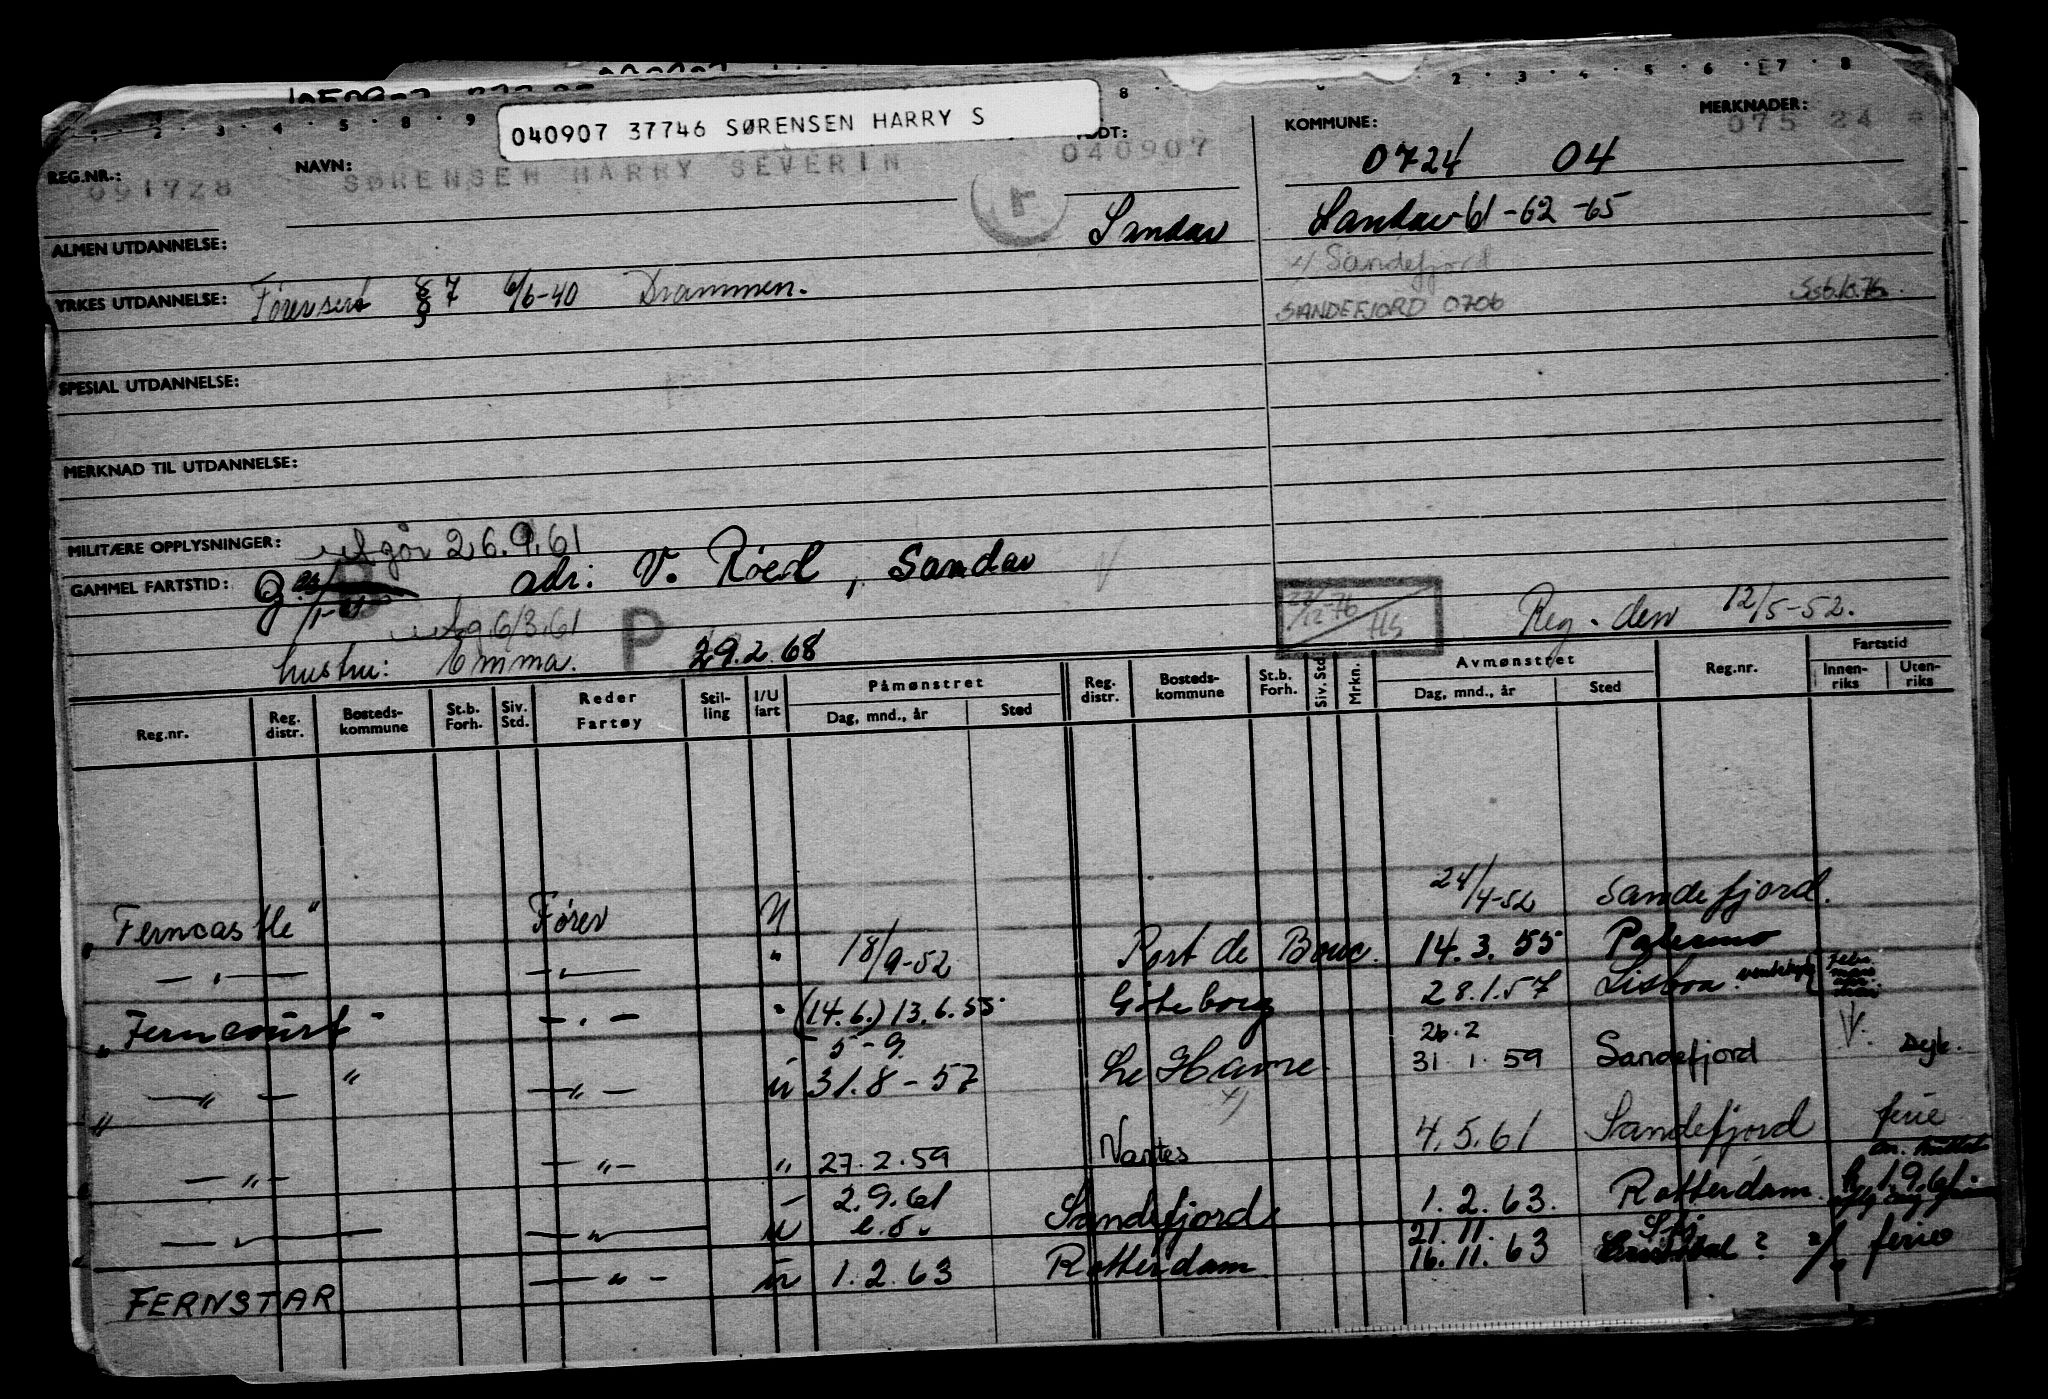 040907 37746 SØRENSEN HARRY S
REG.NR.: 091728 NAVN: SØRENSEN HARRY SEVERIN 040907 KOMMUNE: 0724 04 MERKNADER: 075 24
Sandar Sandar 61 - 62 - 65
ALMEN UTDANNELSE:
Sandefjord
YRKES UTDANNELSE: 7 6/6-40 Drammen.
SANDEFJORD 0706
SPESIAL UTDANNELSE:
MERKNAD TIL UTDANNELSE:
MILITÆRE OPPLYSNINGER: 26.9.61
GAMMEL FARTSTID: adr: V. Røed, Sandar
6/3.61 P Reg. den 12/5-52.
hustru: Emma. 29.2.68
Reg.nr. Reg. distr. Bosteds-kommune St.b. Forh. Siv. Std. Reder Fartøy Stil-ling I/U fart Påmønstret Dag, mnd., år Sted Reg. distr. Bosteds-kommune St.b. Forh. Siv. Std. Mrkn. Avmønstret Dag, mnd., år Sted Reg.nr. Fartstid Innen-riks Uten-riks
"Ferncastle" Fører U 24/4-52 Sandefjord.
— " — — " — " 18/9-52 Port de Bouc. 14.3.55 Palermo
"Ferncourt" — " — " (14.6.) 13.6.55 Göteborg 28.1.57 Lisboa
5-9. 26.2
" — " — " — " — u 31.8-57 Le Havre 31.1.59 Sandefjord
— " — — " — " 27.2.59 Nantes 4.5.61 Sandefjord ferie
2.9.61
— " — — " — u Sandefjord 1.2.63. Rotterdam 1.9.61
21.11.
FERNSTAR — " — u 1.2.63 Rotterdam 16.11.63 ferie